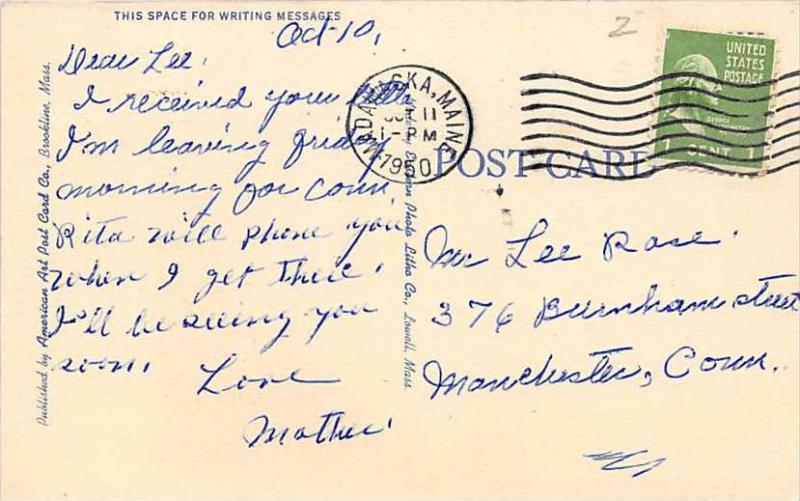 THIS SPACE FOR WRITING MESSAGES
Oct-10,
Dear Lee,
I received your letter
I'm leaving friday
morning for Conn.
Rita will phone you
when I get there.
I'll be seeing you
soon.
Love
Mother.
Published by American Art Post Card Co., Brookline, Mass.
Eastern Photo Litho Co., Lowell, Mass.
2
MADAWASKA, MAINE
OCT 11
1-PM
1950
UNITED
STATES
POSTAGE
GEORGE
WASHINGTON
1 CENT 1
POST CARD
Mr Lee Rose.
376 Burnham street
Manchester, Conn.